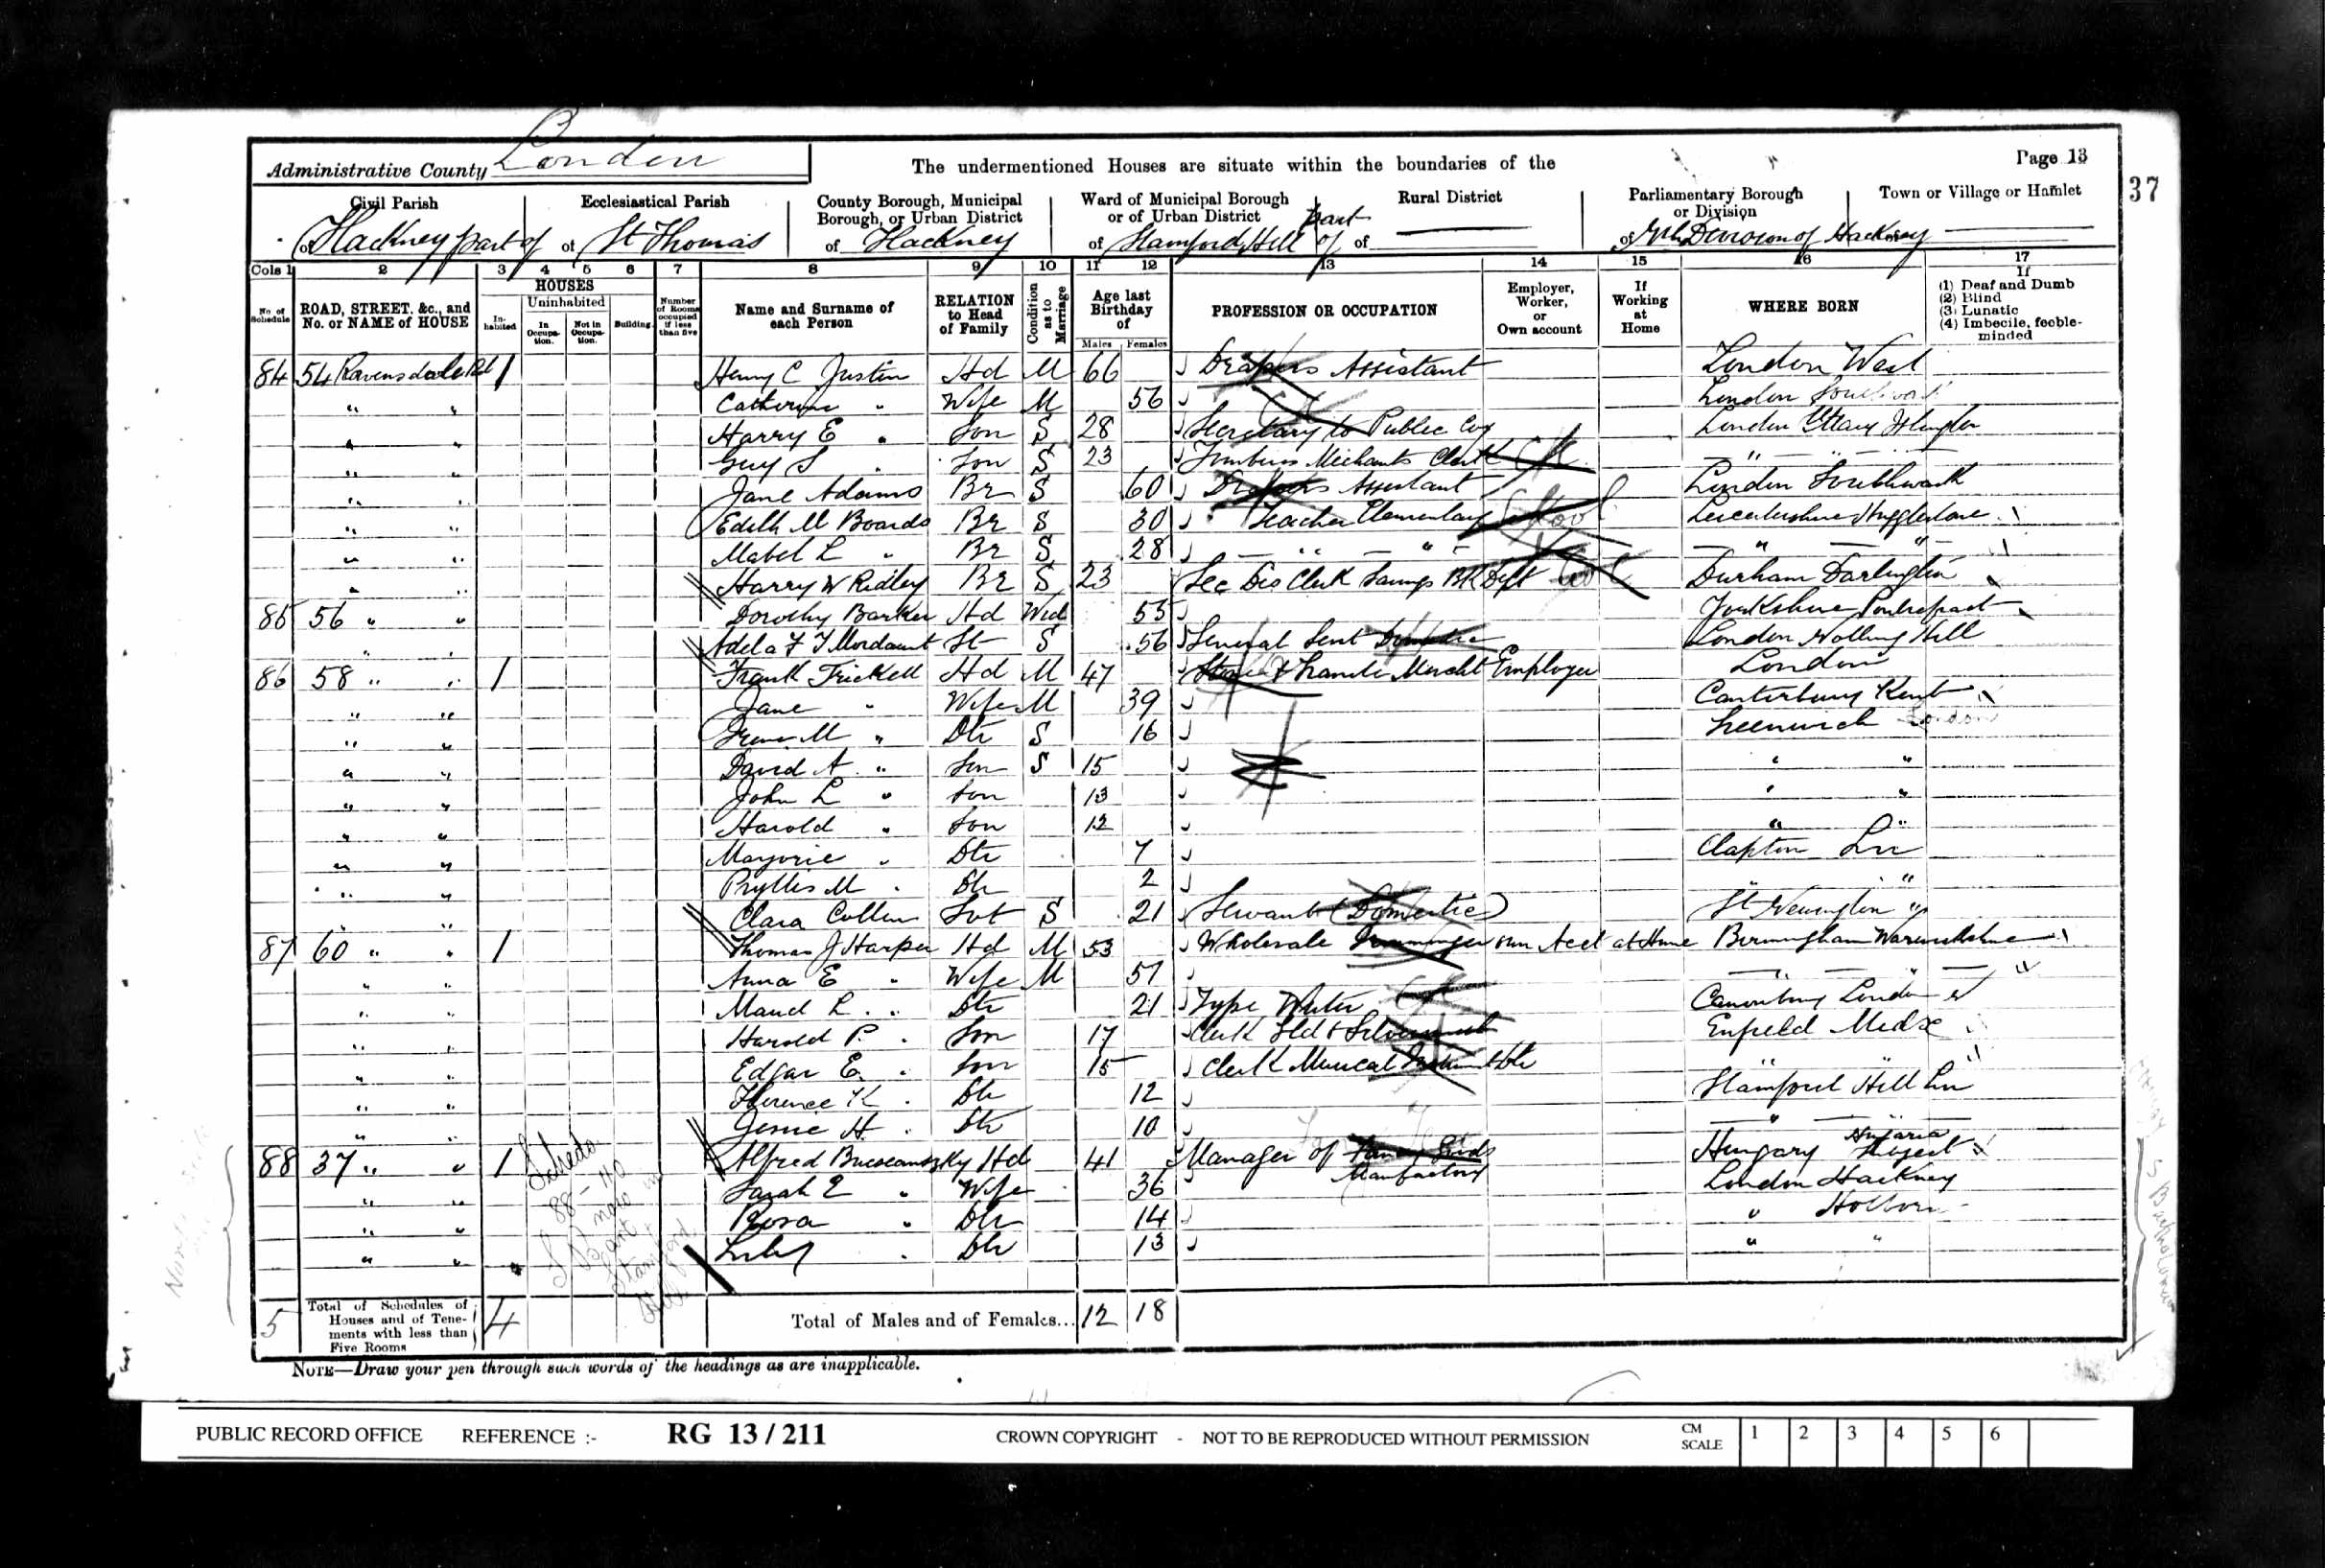 Administrative County London
The undermentioned Houses are situate within the boundaries of the
Page 13
37
Civil Parish
of Hackney part of
Ecclesiastical Parish
of St Thomas
County Borough, Municipal
Borough, or Urban District
of Hackney
Ward of Municipal Borough
or of Urban District
of Stamford Hill part of
Rural District
of
Parliamentary Borough
or Division
of Nth Division of Hackney
Town or Village or Hamlet
Cols 1 2 3 4 5 6 7 8 9 10 11 12 13 14 15 16 17
No. of Schedule
ROAD, STREET, &c., and No. or NAME of HOUSE
HOUSES
Inhabited
Uninhabited
In Occupation.
Not in Occupation.
Building
Number of Rooms occupied if less than five
Name and Surname of each Person
RELATION to Head of Family
Condition as to Marriage
Age last Birthday of
Males Females
PROFESSION OR OCCUPATION
Employer, Worker, or Own account
If Working at Home
WHERE BORN
If
(1) Deaf and Dumb
(2) Blind
(3) Lunatic
(4) Imbecile, feeble-minded
84 54 Ravensdale Rd 1 Henry C Justin Hd M 66 Drapers Assistant London West
" " Catherine " Wife M 56 London
" " Harry E " Son S 28 Secretary to Public Coy London St Mary Islington
" " Guy S " Son S 23 Merchants Clerk " "
" " Jane Adams Br S 60 Drapers Assistant London Southwark
" " Edith M Boards Br S 30 Teacher Elementary School Leicestershire Hugglestone
" " Mabel L " Br S 28 " " " "
" " Harry W Ridley Br S 23 Sec Div Clerk Savings Bk Dept Durham Darlington
85 56 " " Dorothy Barker Hd Wid 55 Yorkshire Pontefract
" " Adela F T Mordaunt St S 56 General Servt Domestic London Notting Hill
86 58 " " 1 Frank Trickett Hd M 47 Stone & Granite Mercht Employer London
" " Jane " Wife M 39 Canterbury Kent
" " Irene M " Dtr S 16 Greenwich London
" " David A " Son S 15 " "
" " John L " Son 13 " "
" " Harold " Son 12 " "
" " Marjorie " Dtr 7 Clapton Ln
" " Phyllis M " Dtr 2 "
" " Clara Cullen Svt S 21 Servant (Domestic) St Newington "
87 60 " " 1 Thomas J Harper Hd M 53 Wholesale own Acct at Home Birmingham Warwickshire
" " Anna E " Wife M 51 " " "
" " Maud L " Dtr 21 Type Writer Canonbury London
" " Harold P. " Son 17 Clerk Gld & Enfield Midx
" " Edgar E. " Son 15 Clerk Musical " "
" " Florence K " Dtr 12 Stamford Hill Ln
" " Jessie H. " Dtr 10 " "
88 37 " " 1 Alfred Hd 41 Manager of Fancy Goods Hungary
Manufactory
" " Sarah E " Wife 36 London Hackney
" " Rosa " Dtr 14 " Holborn
" " Lily " Dtr 13 " "
5 Total of Schedules of Houses and of Tenements with less than Five Rooms 4
Total of Males and of Females... 12 18
NOTE—Draw your pen through such words of the headings as are inapplicable.
PUBLIC RECORD OFFICE REFERENCE :- RG 13 / 211 CROWN COPYRIGHT - NOT TO BE REPRODUCED WITHOUT PERMISSION CM SCALE 1 2 3 4 5 6